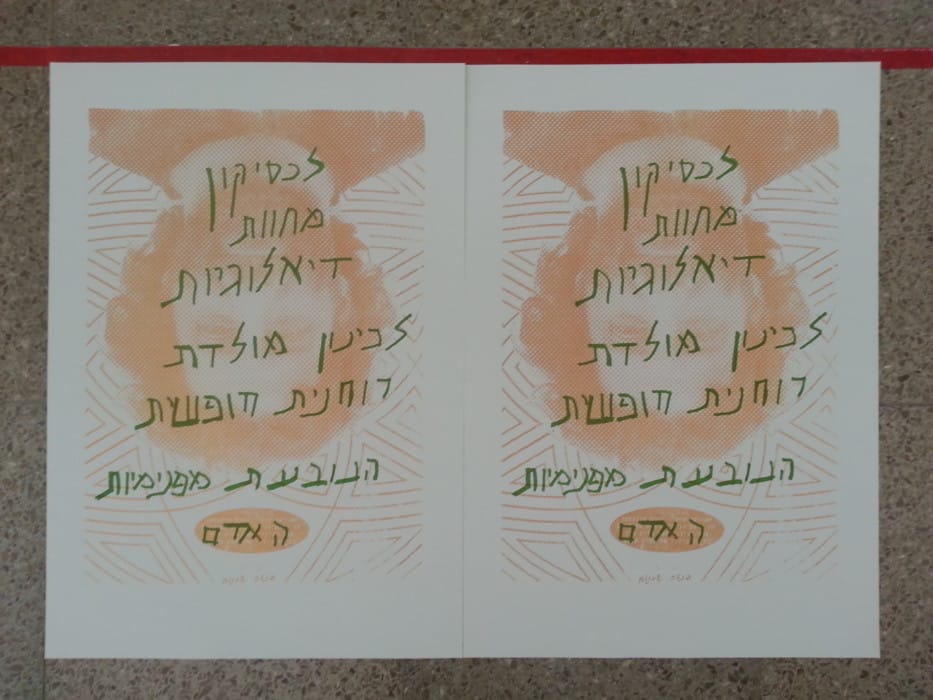 לכסיקון
מחוות
דיאלוגיות
לכינון מולדת
רוחנית חופשית
הנובעת מפנימיות
האדם
לכסיקון
מחוות
דיאלוגיות
לכינון מולדת
רוחנית חופשית
הנובעת מפנימיות
האדם